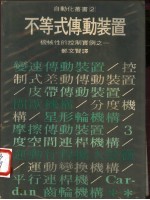 自動化叢書②
不等式傳動裝置
機械性的控制實例之一
郭文賢譯
變速傳動裝置／控
制式差動傳動裝置／
／皮帶傳動裝置／
分度機
構／星形輪機構／
摩擦傳動裝置／3
度空間連桿機構／
／運動變換機構／
平行連桿機／Car-
dan 齒輪機構